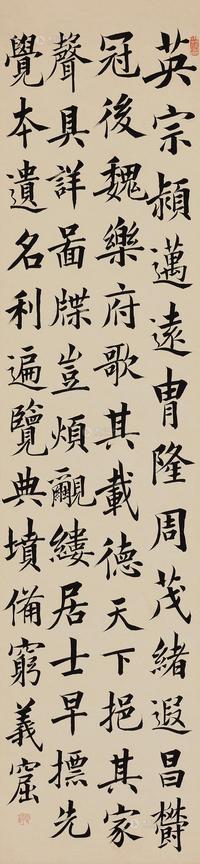 英宗頴邁遠胄隆周茂緒遐昌欝
冠後魏樂府歌其載德天下挹其家
聲具詳啚牒豈煩覼縷居士早摽先
覺本遺名利遍覽典墳備窮義窟